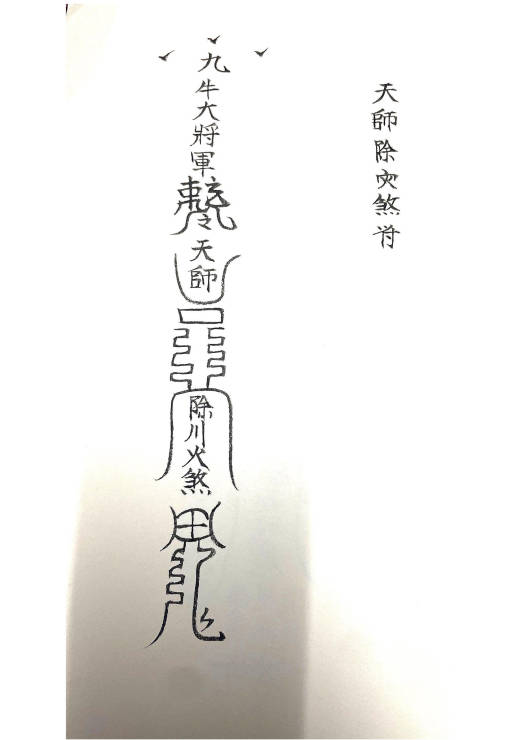 天師除灾煞符
九牛大將軍
天師
除川火煞